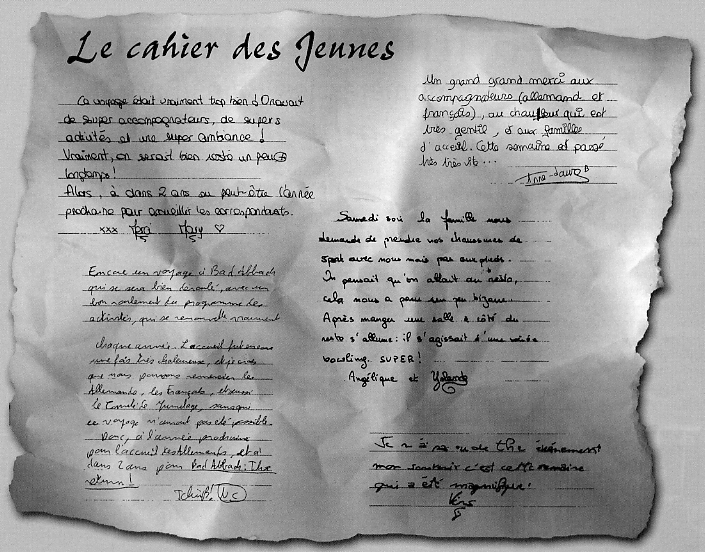 Le cahier des Jeunes
Ca voyage était vraiment trop bien ! On avait
de super accompagnateurs, de supers
activités et une super ambiance !
Vraiment, on serait bien resté un peu
longtemps !
Alors, à dans 2 ans ou peut-être l'année
prochaine pour accueillir les correspondants.
xxx Mary ♡
Encore un voyage à Bad Abbach
qui se sera bien déroulé, avec un
bon roulement du programme des
activités, qui se renouvelle vraiment
chaque année. L'accueil fut encore
une fois très chaleureux, et je crois
que nous pouvons remercier les
Allemands, les Français, et aussi
le Comité de Jumelage, sans qui
ce voyage n'aurait pas été possible.
Donc, à l'année prochaine
pour l'accueil des Allemands, et à
dans 2 ans pour Bad Abbach : The
return !
Tchüß !
Un grand grand merci aux
accompagnateurs (allemand et
français), au chauffeur qui est
très gentil, et aux familles
d'acceuil. Cette semaine est passé
très très vite ...
Anna-Laura
Samedi soir la famille nous
demande de prendre nos chaussures de
sport avec nous mais pas aux pieds.
On pensait qu'on allait au resto,
cela nous a paru un peu bizarre.
Après manger une salle à côté du
resto s'allume : il s'agissait d'une soirée
bowling. SUPER !
Angélique et Yolande
Je n'ai pas eu de the événement
mon souvenir c'est cette semaine
qui a été magnifique !